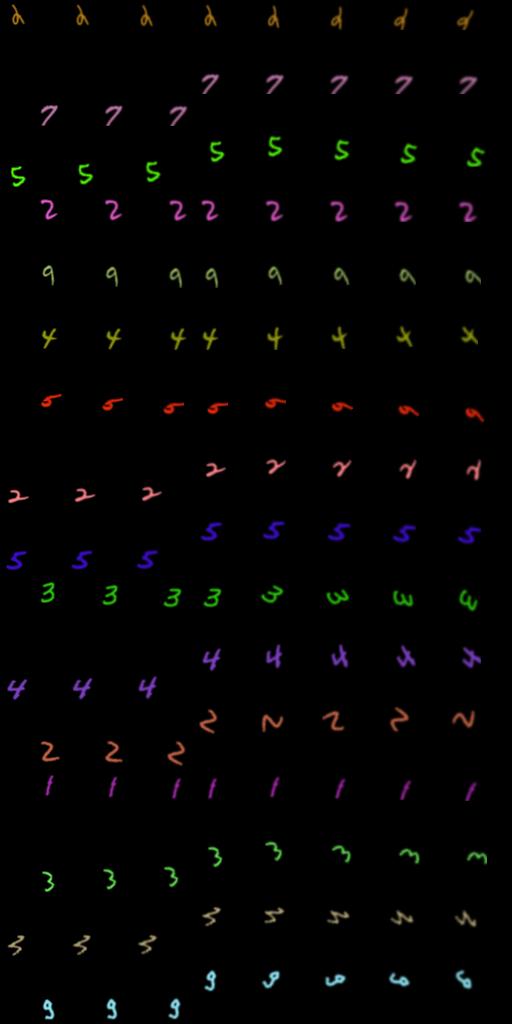 2 2 2 2 2 2 2 2
7 7 7 7 7 7 7 7
5 5 5 5 5 5 5 5
2 2 2 2 2 2 2 2
9 9 9 9 9 9 9 9
4 4 4 4 4 4 4 4
5 5 5 5 5 5 5 5
2 2 2 2 2 2 2 2
5 5 5 5 5 5 5 5
3 3 3 3 3 3 3 3
4 4 4 4 4 4 4 4
2 2 2 2 2 2 2 2
1 1 1 1 1 1 1 1
3 3 3 3 3 3 3 3
9 9 9 9 9 9 9 9